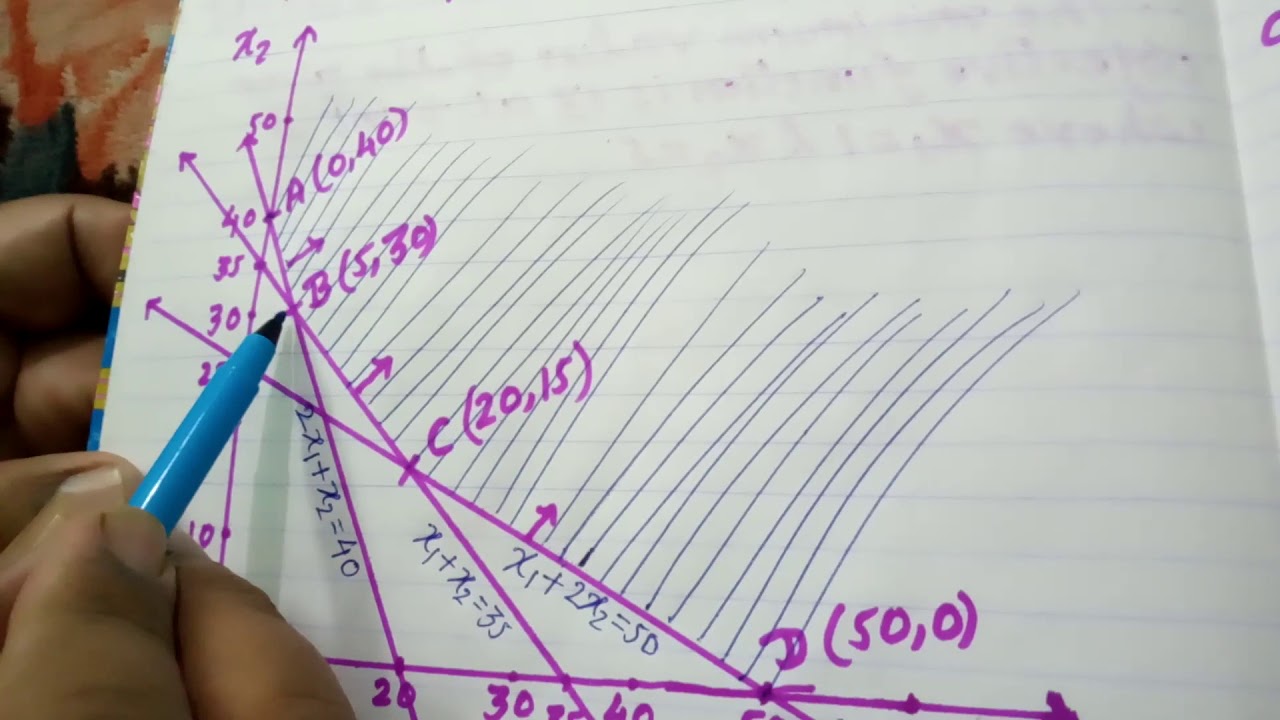 x₂
50
A(0,40)
40
35
B(5,30)
30
C(20,15)
2x₁+x₂=40
10
x₁+x₂=35
x₁+2x₂=50
D(50,0)
20
30
40